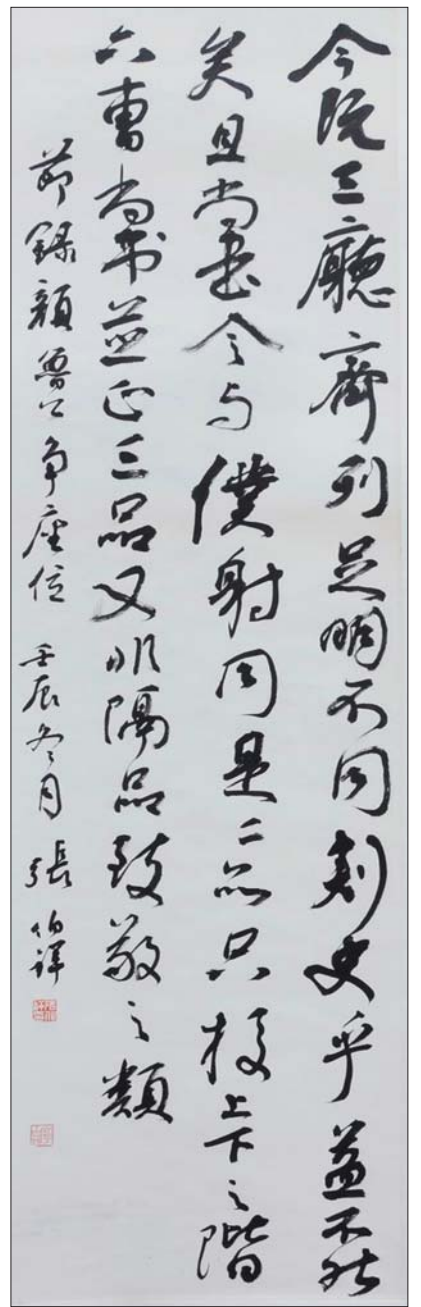 今既三廳齊列足明不同刺史乎益不然
矣且尚書令与僕射同是二品只校上下之階
六曹尚書並正三品又非隔品致敬之類
節録顔魯公争座位 壬辰冬月 張伯